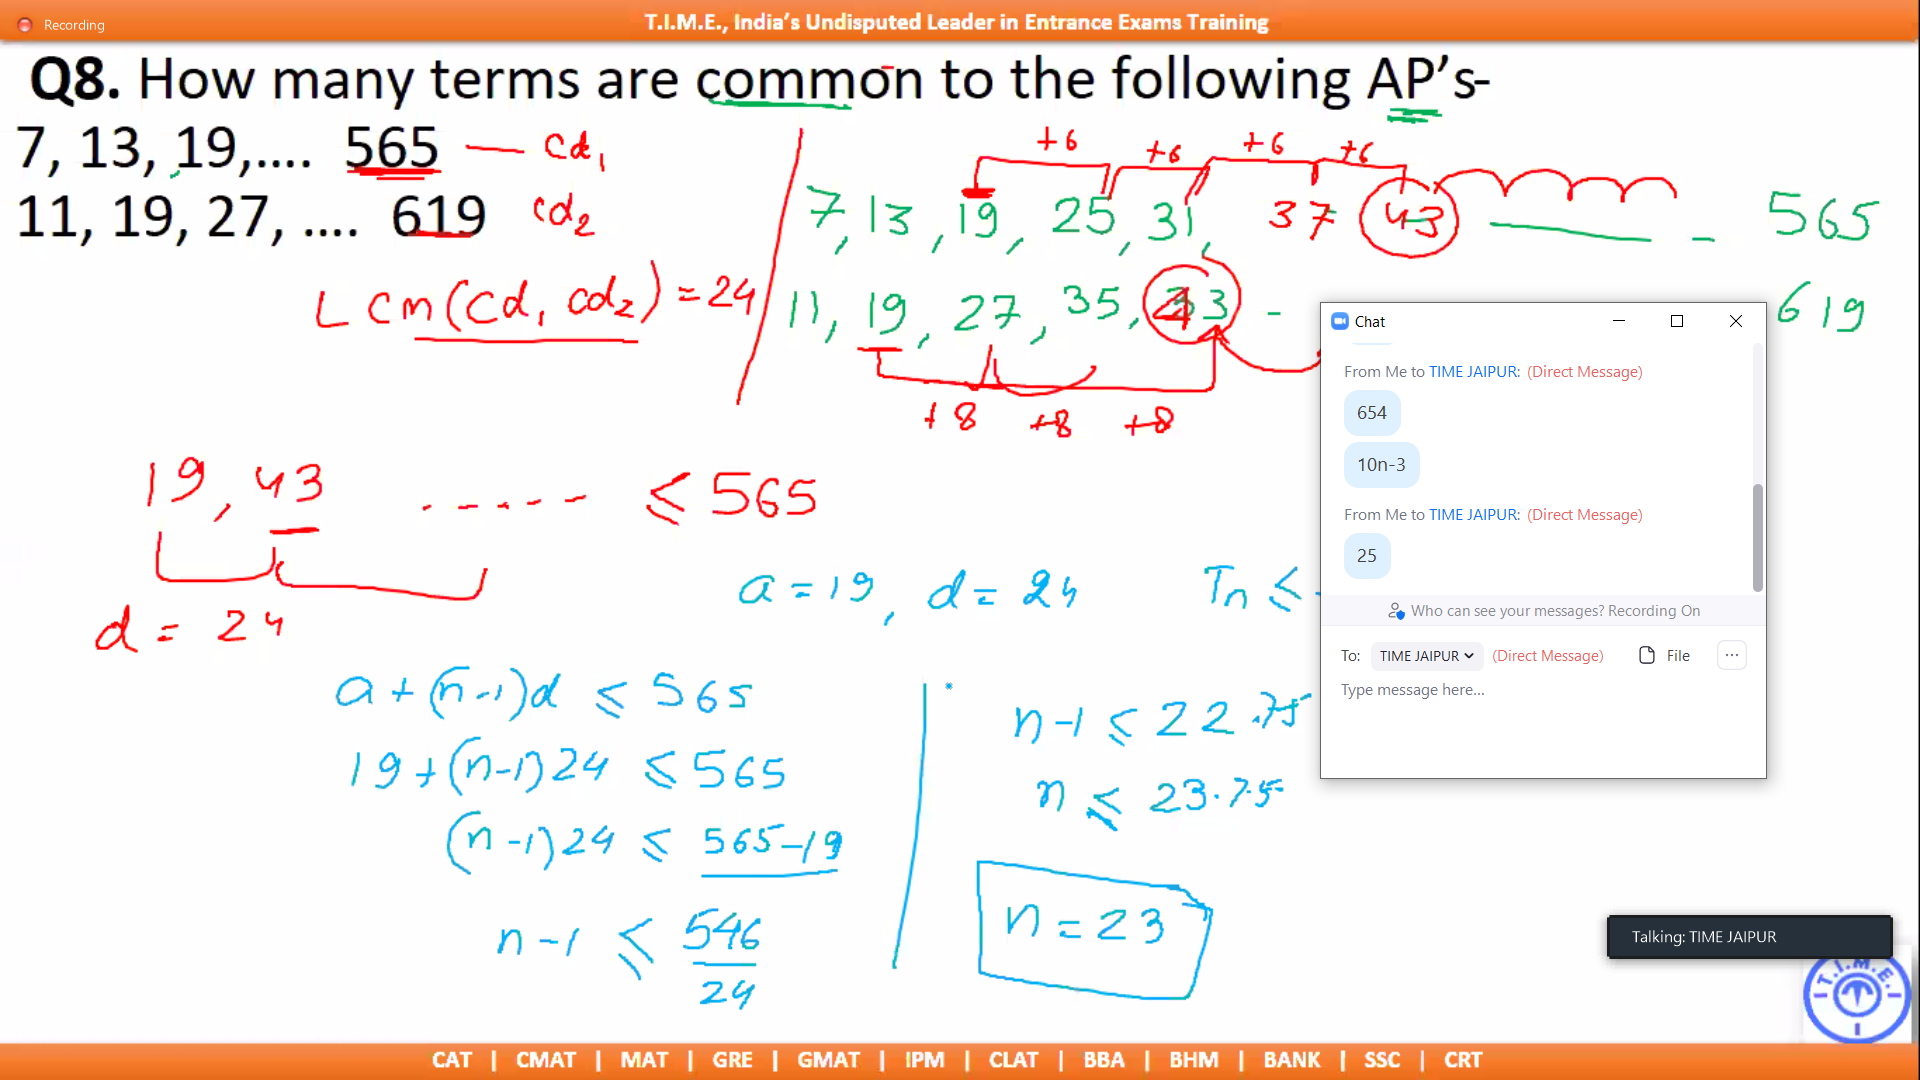 Recording
T.I.M.E., India's Undisputed Leader in Entrance Exams Training
Q8. How many terms are common to the following AP's-
7, 13, 19,.... 565 — cd1
11, 19, 27, .... 619 cd2
LCM(cd1 cd2) = 24
+6 +6 +6 +6
7, 13, 19, 25, 31, 37 43 - 565
11, 19, 27, 35, 43 - 619
+8 +8 +8
19, 43 ...... ≤ 565
d = 24
a = 19, d = 24 Tn ≤
a + (n-1)d ≤ 565
19 + (n-1)24 ≤ 565
(n-1)24 ≤ 565-19
n-1 ≤ 546/24
n-1 ≤ 22.75
n ≤ 23.75
n = 23
Chat
From Me to TIME JAIPUR: (Direct Message)
654
10n-3
From Me to TIME JAIPUR: (Direct Message)
25
Who can see your messages? Recording On
To: TIME JAIPUR (Direct Message) File ...
Type message here...
Talking: TIME JAIPUR
T.I.M.E.
CAT | CMAT | MAT | GRE | GMAT | IPM | CLAT | BBA | BHM | BANK | SSC | CRT